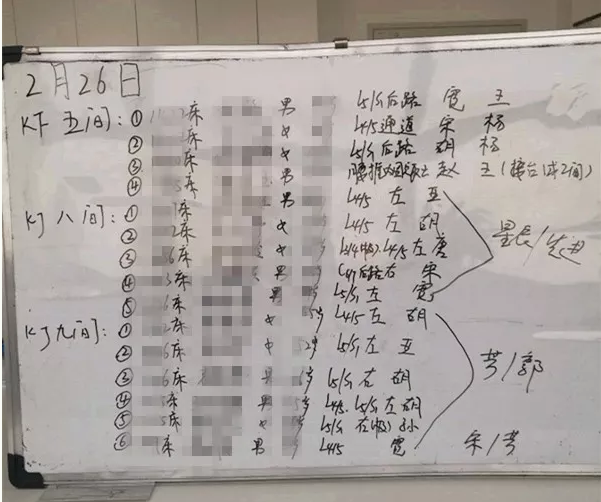 2月26日
KJ五间: ① 2床 男 L5/S1后路 宽 王
② 床 女 L4/5通道 宋 杨
③ 床 男 L5/S1后路 胡 杨
④ 5床 男 腰椎 赵 王(接台12间)
KJ八间: ① 床 男 L4/5 左 亚
② 2床 女 L4/5 左 胡
③ 6床 女 L4/5左 唐
④ 3床 男 后路右 宋
⑤ 6床 男 L5/S1 左 宽
KJ九间: ① 2床 女 5岁 L4/5 左 胡
② 6床 女 2岁 L5/S1 左 亚
③ 6床 男 6岁 L5/S1 右 胡
④ 5床 男 岁 L4/5. L5/S1 左 胡
⑤ 5床 女 岁 L5/S1 右 孙
⑥ 床 男 L4/5 宽 宋/芳
芳/郭